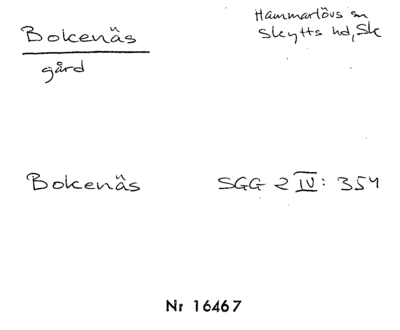 Bokenäs
Hammarlövs sn
gård
Skytts hd, Sk
Bokenäs SGG 2 IV: 354
Nr 16467